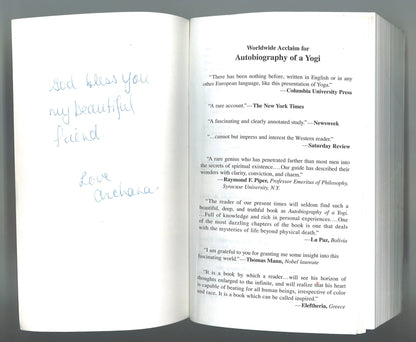 God bless you
my beautiful
friend
Love
Archana
Worldwide Acclaim for
Autobiography of a Yogi
“There has been nothing before, written in English or in any
other European language, like this presentation of Yoga.”
—Columbia University Press
“A rare account.”—The New York Times
“A fascinating and clearly annotated study.”—Newsweek
“…cannot but impress and interest the Western reader.”
—Saturday Review
“A rare genius who has penetrated further than most men into
the secrets of spiritual existence.…One guide has described their
wonders with clarity, conviction, and charm.”
—Raymond F. Piper, Professor Emeritus of Philosophy,
Syracuse University, N.Y.
“The reader of our present times will seldom find such a
beautiful, deep, and truthful book as Autobiography of a Yogi.
…Full of knowledge and rich in personal experiences.…One
of the most dazzling chapters of the book is one that deals
with the mysteries of life beyond physical death.”
—La Paz, Bolivia
“I am grateful to you for granting me some insight into this
fascinating world.”—Thomas Mann, Nobel laureate
“It is a book by which a reader…will see his horizon of
thoughts enlarged to the infinite, and will realize that his heart
is capable of beating for all human beings, irrespective of color
and race. It is a book which can be called inspired.”
—Eleftheria, Greece